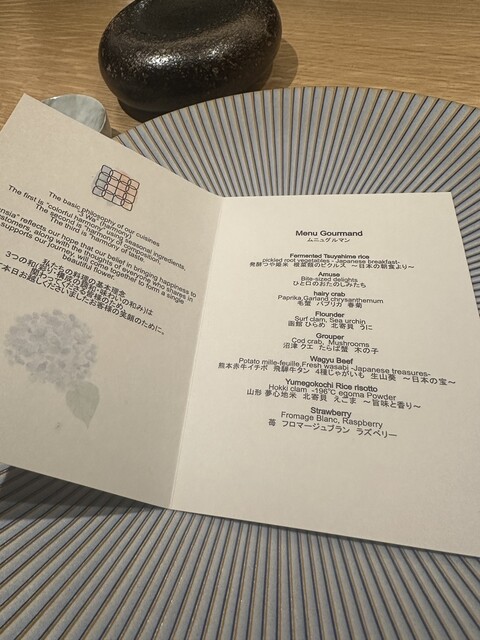 The basic philosophy of our cuisines
"3 Wa" (harmony)
The first is "colorful harmony of seasonal ingredients.
The second is harmony of composition,
The third is "harmony of taste.
" reflects our hope that our belief in bringing happiness to
customers, along with the thoughts of everyone who
supports our journey, will come together to form a single
beautiful flower.
私たちの料理の基本理念
Menu Gourmand
ムニュグルマン
Fermented Tsuyahime rice
pickled root vegetables - Japanese breakfast-
発酵つや姫米 根菜類のピクルス ～日本の朝食より～
Amuse
Bite-sized delights
ひと口のおたのしみたち
hairy crab
Paprika,Garland chrysanthemum
毛蟹 パプリカ 春菊
Flounder
Surf clam, Sea urchin
函館 ひらめ 北寄貝 うに
Grouper
Cod crab, Mushrooms
沼津 クエ たらば蟹 木の子
Wagyu Beef
Potato mille-feuille,Fresh wasabi -Japanese treasures-
熊本赤牛イチボ 飛騨牛タン 4種じゃがいも 生山葵 ～日本の宝～
Yumegokochi Rice risotto
Hokki clam -196℃ egoma Powder
山形 夢心地米 北寄貝 えごま ～旨味と香り～
Strawberry
Fromage Blanc, Raspberry
苺 フロマージュブラン ラズベリー